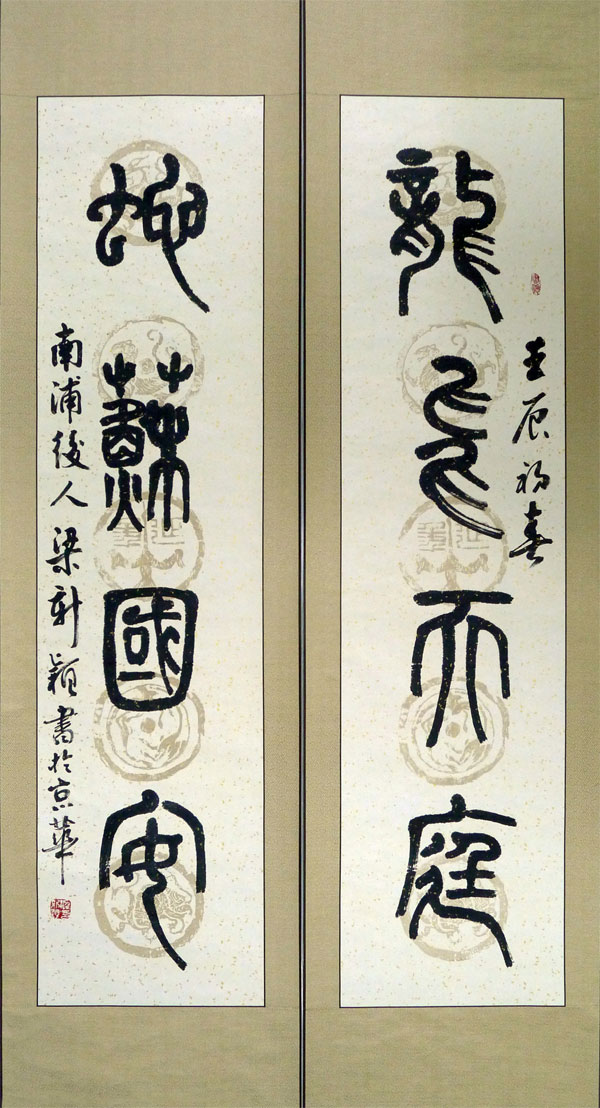 龍飛天庭
壬辰福喜
蛇蘇國安
南浦後人梁新穎書於京華